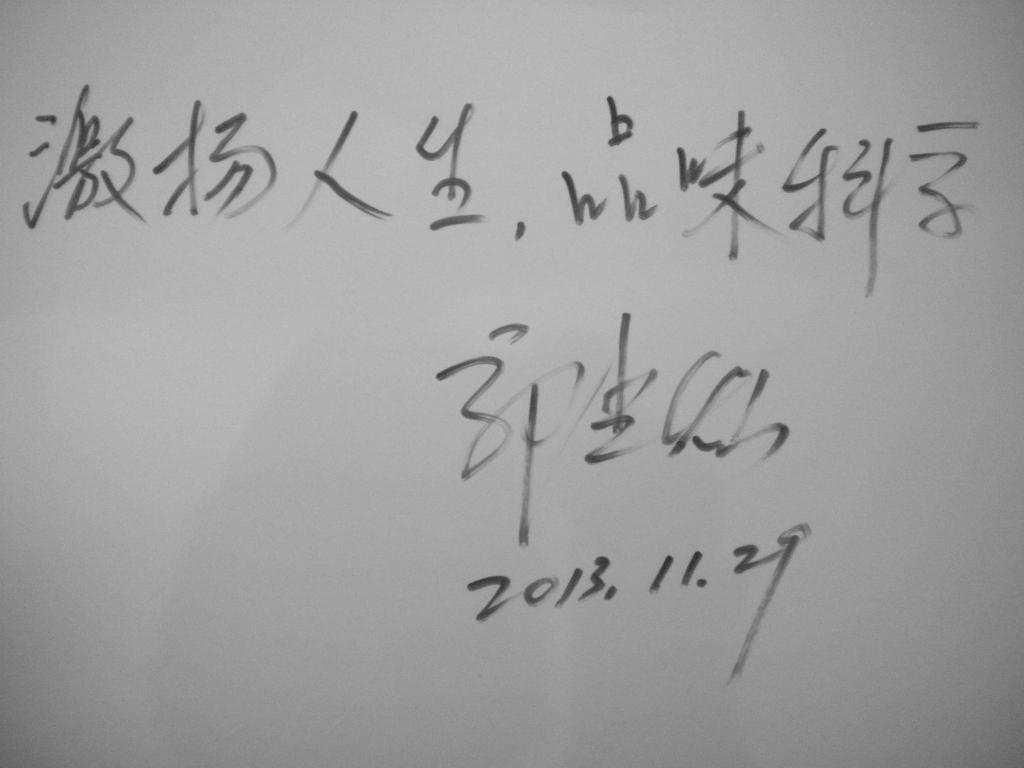 激扬人生，品味科学
郭生
2013.11.29